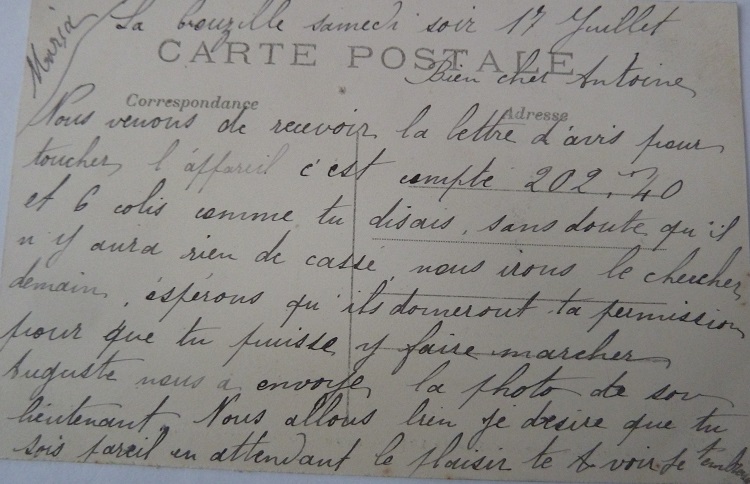 La bouzille samedi soir 17 Juillet
CARTE POSTALE
Bien cher Antoine
Correspondance
Adresse
Nous venons de recevoir la lettre d'avis pour
toucher l'áffareil c'est compté 202,40
et 6 colis comme tu disais, sans doute qu'il
n'y aura rien de cassé, nous irons le chercher
demain, éspérons qu'ils domeront ta permission
pour que tu puisse y faire marcher
Auguste nous a envoye la photo de son
lieutenant. Nous allons bien je desire que tu
sois pareil en attendant le plaisir te voir je
Maria